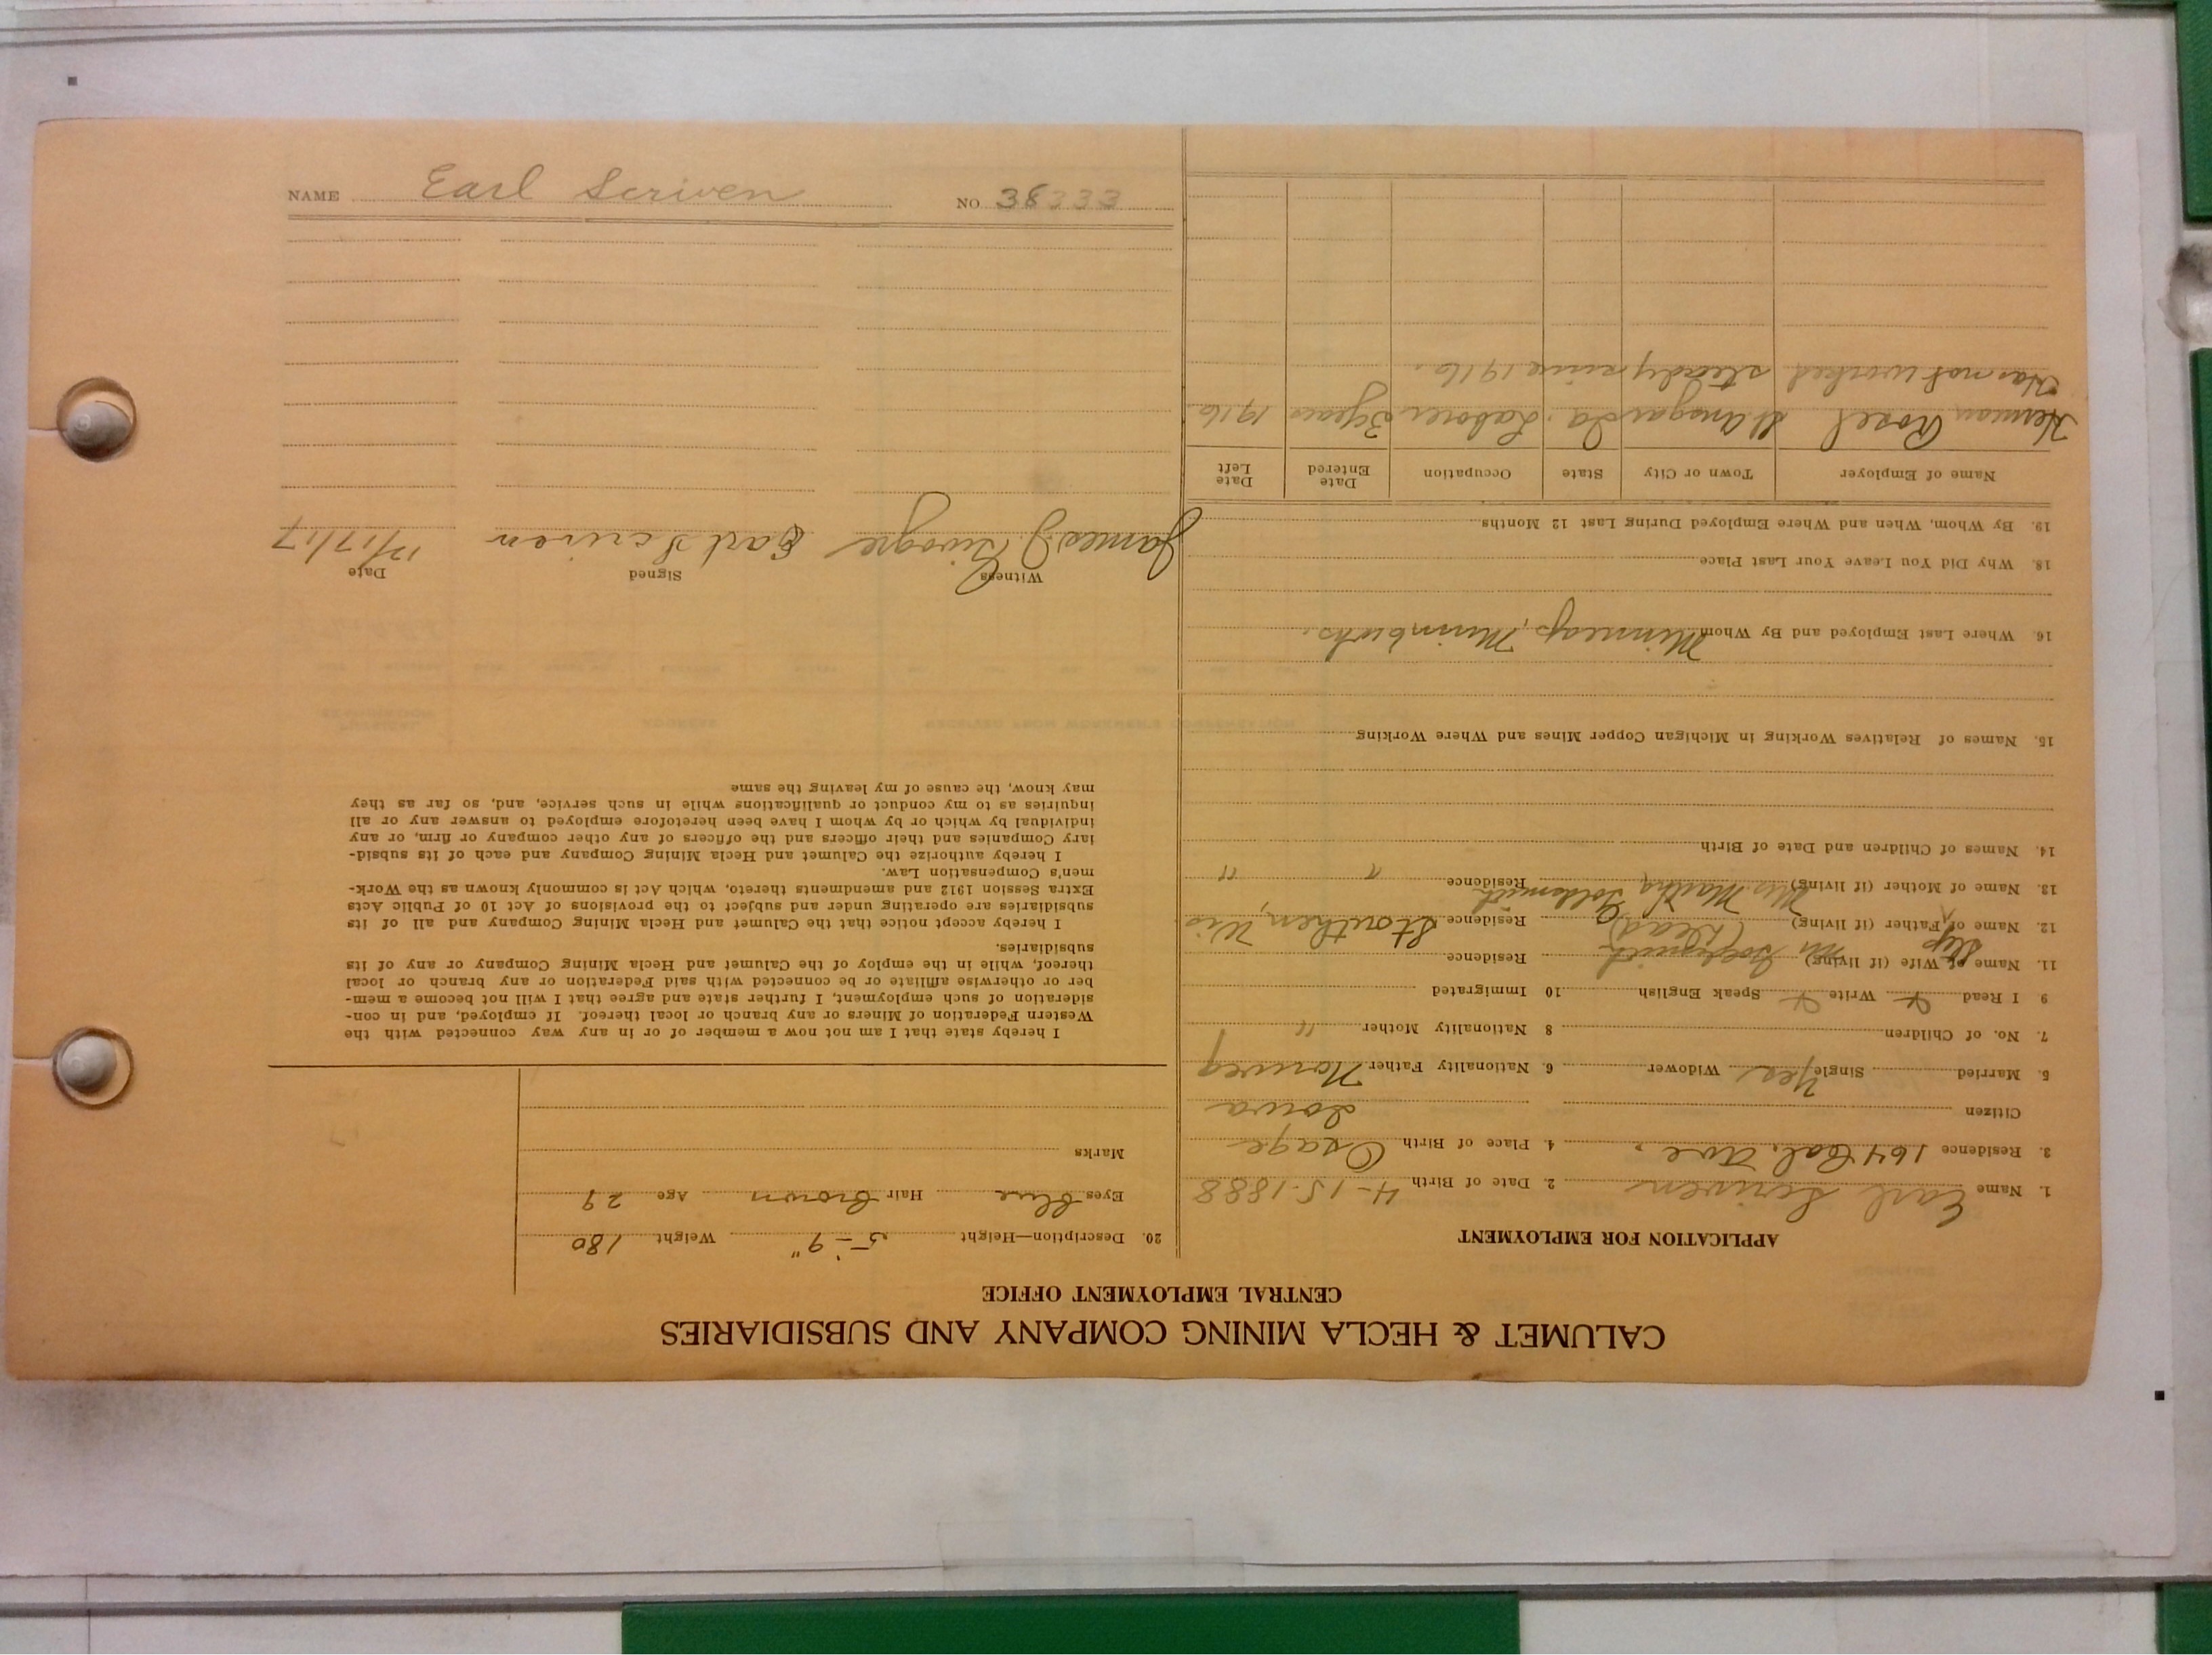 CALUMET & HECLA MINING COMPANY AND SUBSIDIARIES
CENTRAL EMPLOYMENT OFFICE
APPLICATION FOR EMPLOYMENT
1. Name Earl Scriven 2. Date of Birth 4-15-1888
3. Residence 164 Cal. Ave. 4. Place of Birth Osage
Citizen Iowa
5. Married Single Yes Widower 6. Nationality Father Norweg
7. No. of Children 8 Nationality Mother "
9 I Read Write Speak English 10 Immigrated
11. Name of Wife (if living) Residence
Step Mr Goldsmith
12. Name of Father (if living) (Dead) Residence Wis
13. Name of Mother (if living) Mrs Martha Goldsmith Residence " "
14. Names of Children and Date of Birth
15. Names of Relatives Working in Michigan Copper Mines and Where Working
16. Where Last Employed and By Whom Minneap, Minn
18. Why Did You Leave Your Last Place
19. By Whom, When and Where Employed During Last 12 Months
Name of Employer Town or City State Occupation Date Entered Date Left
Herman Rosel St Ansgar Ia. Laborer 3 years 1916
Has not worked steady since 1916.
20. Description—Height 5'-9" Weight 180
Eyes blue Hair Brown Age 29
Marks
I hereby state that I am not now a member of or in any way connected with the
Western Federation of Miners or any branch or local thereof. If employed, and in con-
sideration of such employment, I further state and agree that I will not become a mem-
ber or otherwise affiliate or be connected with said Federation or any branch or local
thereof, while in the employ of the Calumet and Hecla Mining Company or any of its
subsidiaries.
I hereby accept notice that the Calumet and Hecla Mining Company and all of its
subsidiaries are operating under and subject to the provisions of Act 10 of Public Acts
Extra Session 1912 and amendments thereto, which Act is commonly known as the Work-
men's Compensation Law.
I hereby authorize the Calumet and Hecla Mining Company and each of its subsid-
iary Companies and their officers and the officers of any other company or firm, or any
individual by which or by whom I have been heretofore employed to answer any or all
inquiries as to my conduct or qualifications while in such service, and, so far as they
may know, the cause of my leaving the same
Witness Signed Date
James J. Earl Scriven 12/17/17
NAME Earl Scriven NO 38333